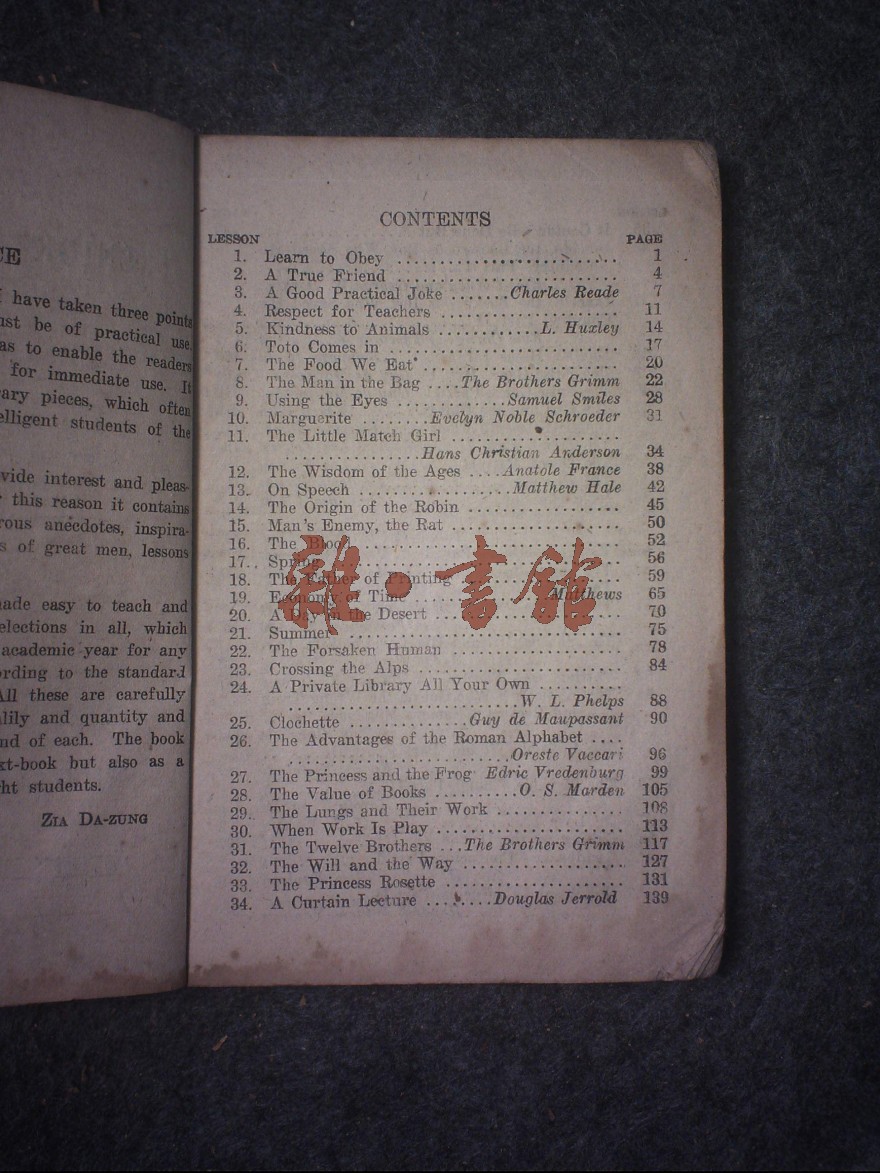 CE
have taken three points
ust be of practical use.
as to enable the readers
for immediate use. It
ary pieces, which often
elligent students of the
vide interest and pleas-
this reason it contains
rous anecdotes, inspira-
s of great men, lessons
ade easy to teach and
elections in all, which
academic year for any
ording to the standard
All these are carefully
lily and quantity and
nd of each. The book
xt-book but also as a
ht students.
ZIA DA-ZUNG
CONTENTS
LESSON PAGE
1. Learn to Obey .......................... 1
2. A True Friend .......................... 4
3. A Good Practical Joke .......Charles Reade 7
4. Respect for Teachers ..................... 11
5. Kindness to Animals ............L. Huxley 14
6. Toto Comes in ........................... 17
7. The Food We Eat ....................... 20
8. The Man in the Bag ....The Brothers Grimm 22
9. Using the Eyes .............Samuel Smiles 28
10. Marguerite ........Evelyn Noble Schroeder 31
11. The Little Match Girl ...................
................Hans Christian Anderson 34
12. The Wisdom of the Ages ....Anatole France 38
13. On Speech ..................Matthew Hale 42
14. The Origin of the Robin .................. 45
15. Man's Enemy, the Rat .................... 50
16. The Blood ............................... 52
17. Spring .................................. 56
18. The Father of Printing ................... 59
19. Economy of Time ................Matthews 65
20. A Day in the Desert ...................... 70
21. Summer ................................. 75
22. The Forsaken Human .................... 78
23. Crossing the Alps ........................ 84
24. A Private Library All Your Own ..........
...........................W. L. Phelps 88
25. Clochette ..............Guy de Maupassant 90
26. The Advantages of the Roman Alphabet ....
..........................Oreste Vaccari 96
27. The Princess and the Frog Edric Vredenburg 99
28. The Value of Books ..........O. S. Marden 105
29. The Lungs and Their Work ............... 108
30. When Work Is Play ...................... 113
31. The Twelve Brothers ...The Brothers Grimm 117
32. The Will and the Way ................... 127
33. The Princess Rosette ..................... 131
34. A Curtain Lecture ........Douglas Jerrold 139
雜·書館